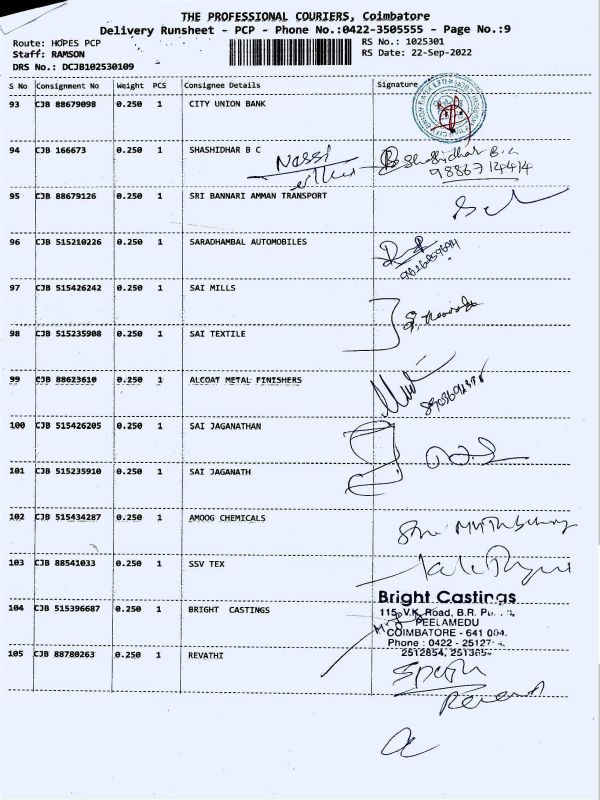 THE PROFESSIONAL COURIERS, Coimbatore
Delivery Runsheet - PCP - Phone No.:0422-3505555 - Page No.:9
Route: HOPES PCP
RS No.: 1025301
Staff: RAMSON
RS Date: 22-Sep-2022
DRS No.: DCJB102530109
S No Consignment No Weight PCS Consignee Details Signature
93 CJB 88679098 0.250 1 CITY UNION BANK
94 CJB 166673 0.250 1 SHASHIDHAR B C Shashidhar B.C
9886714414
95 CJB 88679126 0.250 1 SRI BANNARI AMMAN TRANSPORT
96 CJB 515210226 0.250 1 SARADHAMBAL AUTOMOBILES
97 CJB 515426242 0.250 1 SAI MILLS
98 CJB 515235908 0.250 1 SAI TEXTILE
99 CJB 88623610 0.250 1 ALCOAT METAL FINISHERS
100 CJB 515426205 0.250 1 SAI JAGANATHAN
101 CJB 515235910 0.250 1 SAI JAGANATH
102 CJB 515434287 0.250 1 AMOOG CHEMICALS
103 CJB 88541033 0.250 1 SSV TEX
104 CJB 515396687 0.250 1 BRIGHT CASTINGS
Bright Castings
115, V.K. Road, B.R.
PEELAMEDU
COIMBATORE - 641 004.
Phone : 0422 -
2512854,
105 CJB 88780263 0.250 1 REVATHI